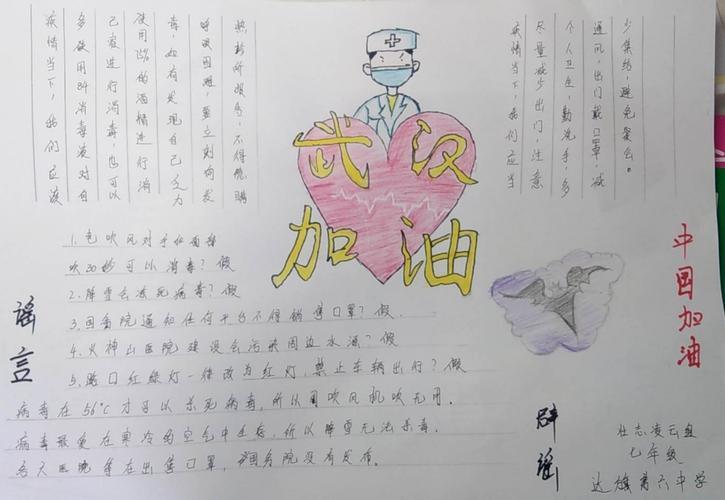 疫情当下，我们应该
多使用84消毒液对自
己家进行消毒，也可以
使用75%的酒精进行消
毒，如有发现自己乏力
呼吸困难，要立刻向发
热诊所报告，不得隐瞒
武汉
加油
疫情当下，我们应当
尽量减少出门，注意
个人卫生，勤洗手，多
通风，出门戴口罩，减
少集结，避免聚会。
中国加油
谣言
1.电吹风对手和面部
吹30秒可以消毒？假
2.降雪会冻死病毒？假
3.国务院通知任何平台不得销售口罩？假.
4.火神山医院建设会污染周边水源？假
5.路口红绿灯一律改为红灯，禁止车辆出行？假
病毒在56°C才可以杀死病毒，所以用吹风机吹无用。
病毒最爱在寒冷的空气中生存，所以降雪无法杀毒。
各大医院等在出售口罩，国务院没有发布。
辟谣
壮志凌云组
七年级
第六中学